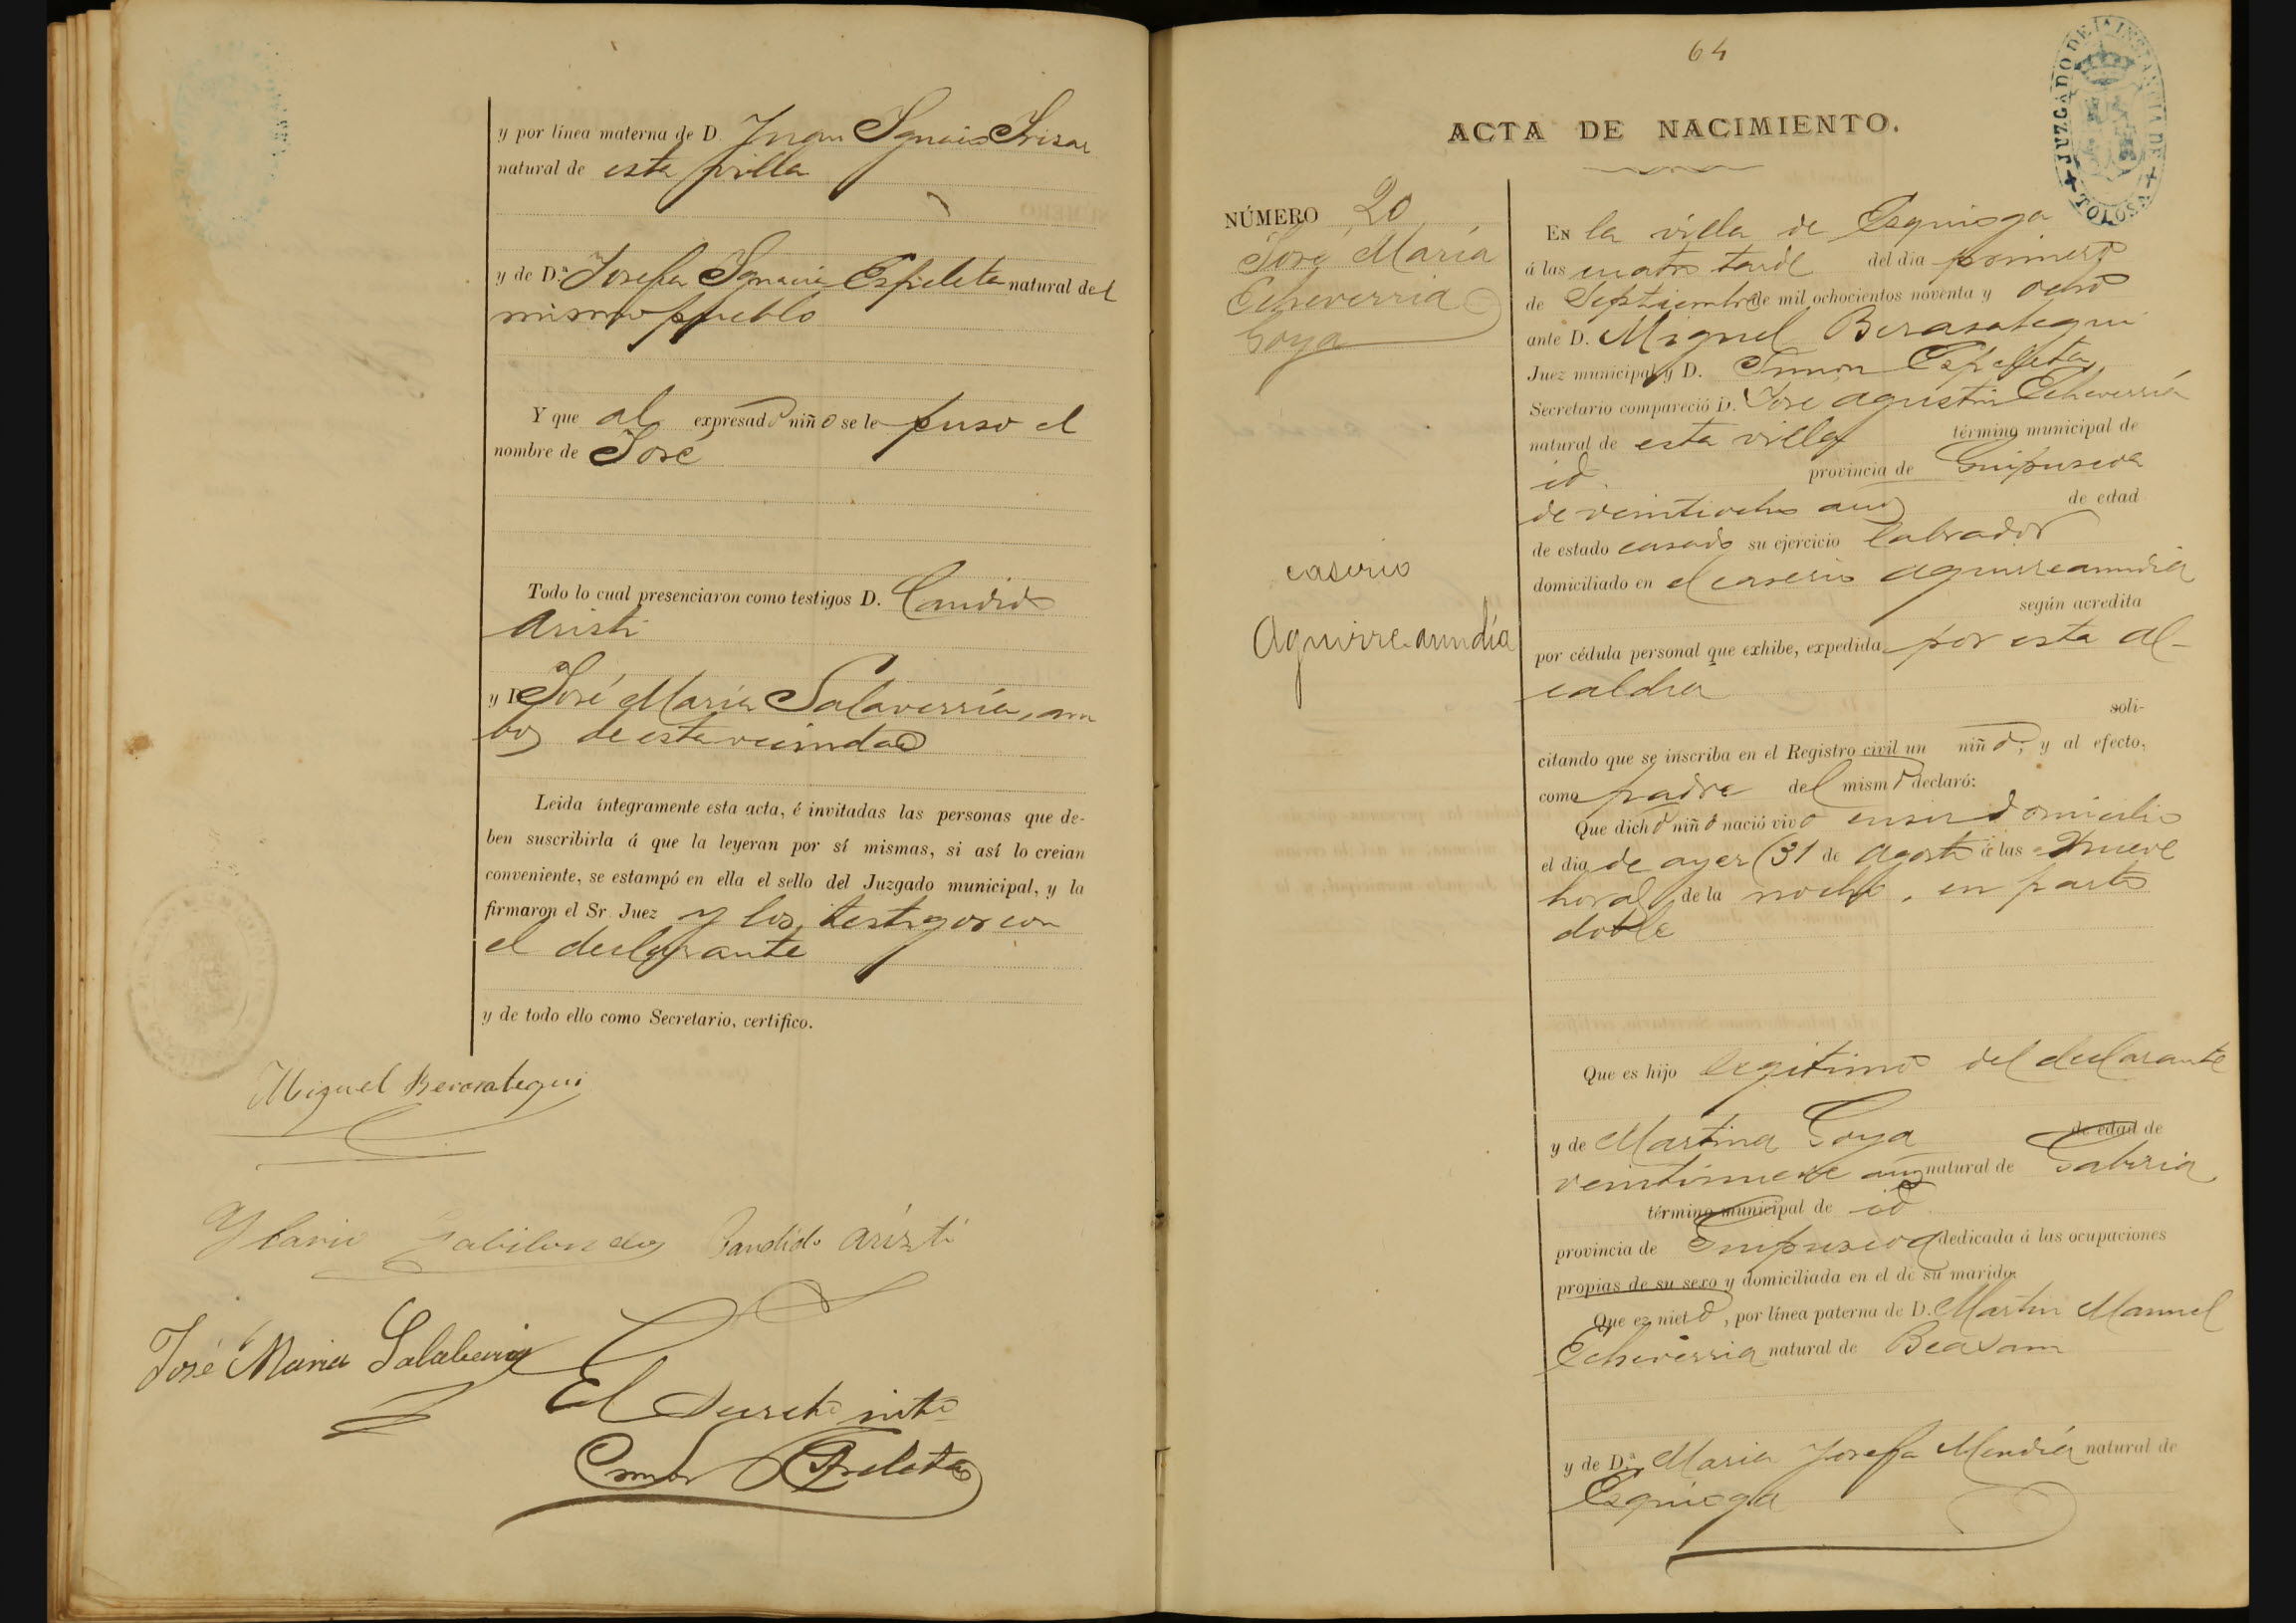 y por línea materna de D. Juan Ignacio Irizar
natural de esta villa
y de D.ª Josefa Ignacia Espeleta natural del
mismo pueblo
Y que al expresado niño se le puso el
nombre de José
Todo lo cual presenciaron como testigos D. Candido
Aristi
y D José María Salaverría, am
bos de esta vecindad
Leida íntegramente esta acta, é invitadas las personas que de-
ben suscribirla á que la leyeran por sí mismas, si así lo creian
conveniente, se estampó en ella el sello del Juzgado municipal, y la
firmaron el Sr. Juez y los testigos con
el declarante
y de todo ello como Secretario, certifico.
Miguel Berasategui
Ylario Gabilondo Candido Arizti
José Maria Salaberria
El Secreto
Espeleta
64
ACTA DE NACIMIENTO.
JUZGADO DE 1.ª INSTANCIA DE TOLOSA
NÚMERO 20
José María
Echeverria
Goya
caserio
Aguirre-aundía
EN la villa de Ezquioga
á las cuatro tarde del dia primero
de Septiembre de mil ochocientos noventa y ocho
ante D. Miguel Berasategui
Juez municipal y D. Simon Espeleta
Secretario compareció D. José Agustin Echeverría
natural de esta villa término municipal de
id. provincia de Guipuscoa
de veintiocho años de edad
de estado casado su ejercicio labrador
domiciliado en el caserio Aguirreaundia
según acredita
por cédula personal que exhibe, expedida por esta Al-
caldia
soli-
citando que se inscriba en el Registro civil un niño, y al efecto,
como padre del mismo declaró:
Que dicho niño nació vivo en su domicilio
el dia de ayer (31 de Agosto á las nueve
horas de la noche, en parto
doble
Que es hijo legitimo del declarante
y de Martina Goya de edad de
veintinueve años natural de Gabiria
término municipal de id
provincia de Guipuscoa dedicada á las ocupaciones
propias de su sexo y domiciliada en el de su marido.
Que es nieto, por línea paterna de D. Martin Manuel
Echeverria natural de Beasain
y de D.ª Maria Josefa Mendía natural de
Ezquioga